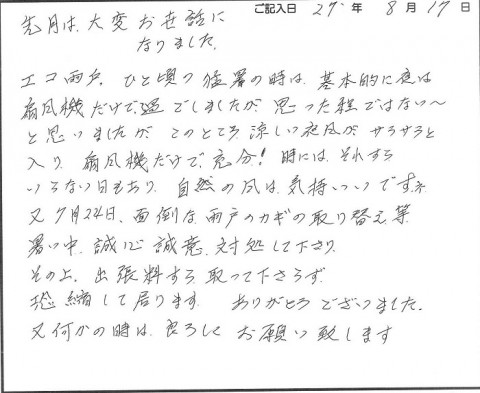 ご記入日 27年 8月 17日
先月は大変お世話に
なりました。
エコ雨戸、ひと頃の猛暑の時は、基本的に夜は
扇風機だけで過でしましたが、思った程ではない〜
と思いましたが、このところ涼しい夜風がサラサラと
入り、扇風機だけで充分! 時には、それすら
いらない日もあり、自然の風は気持いいですネ
又7月24日、面倒な雨戸のカギの取り替え等
暑い中、誠心誠意、対処して下さり、
その上、出張料すら取って下さらず、
恐縮して居ります。 ありがとうございました。
又何かの時は、良ろしくお願い致します